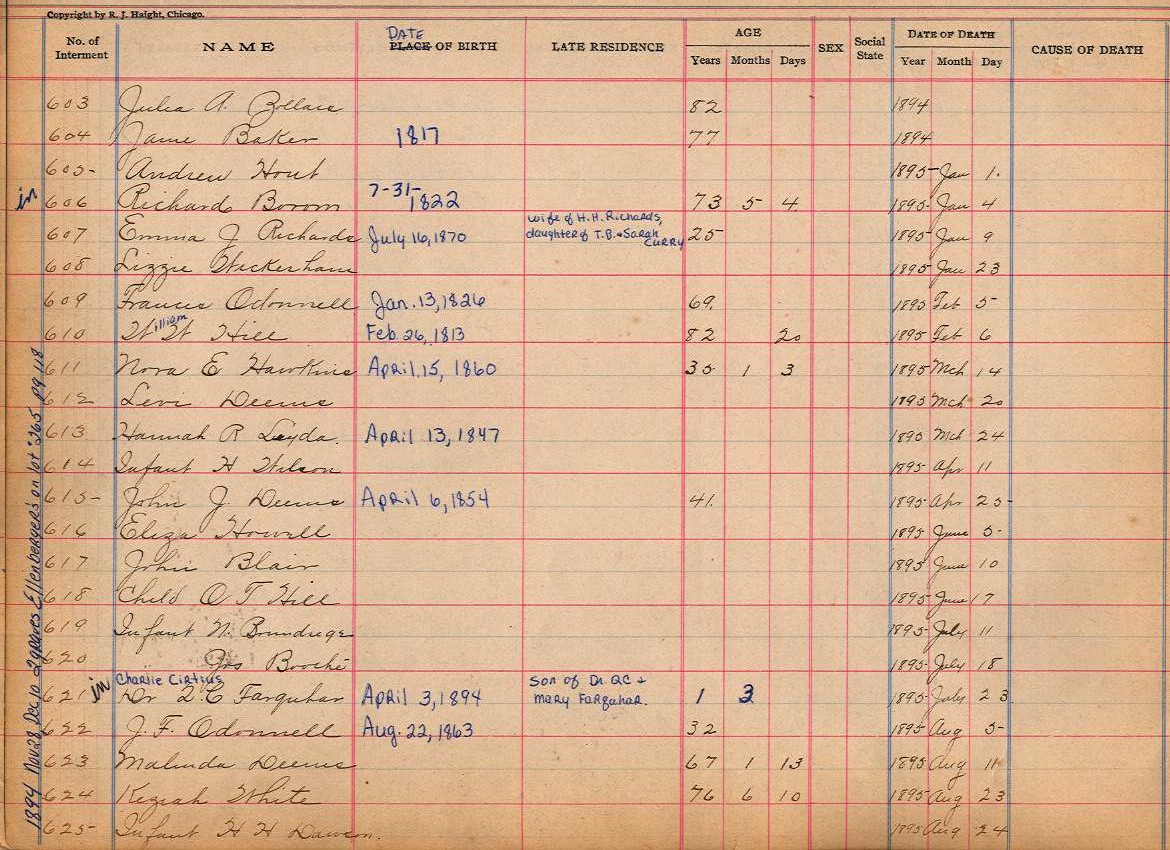 Copyright by R. J. Haight, Chicago.
No. of Interment NAME DATE PLACE OF BIRTH LATE RESIDENCE AGE Years Months Days SEX Social State DATE OF DEATH Year Month Day CAUSE OF DEATH
603 Julia A. 82 1894
604 Jane Baker 1817 77 1894
605- Andrew Hout 1895 Jan 1.
in 606 Richard Borom 7-31-1822 73 5 4 1895 Jan 4
wife of H.H. Richards,
607 Emma J Richards July 16, 1870 daughter of T.B. & Sarah Curry 25 1895 Jan 9
608 Lizzie 1895 Jan 23
609 Frances Odonnell Jan. 13, 1826 69. 1895 Feb 5
610 William W Hill Feb. 26, 1813 82 20 1895 Feb 6
611 Nora E Hawkins April 15, 1860 35 1 3 1895 Mch 14
612 Levi Deems 1895 Mch 20
613 Hannah R Leyda. April 13, 1847 1895 Mch 24
614 Infant H Wilson 1895 Apr 11
615- John J. Deems April 6, 1854 41. 1895 Apr 25
616 Eliza Howell 1895 June 5
617 John Blair 1895 June 10
618 Child O T Hill 1895 June 17
619 Infant N. Brundrige 1895 July 11
620 Boothe 1895 July 18
Charlie Cirtius son of Dr. QC &
in 621 Dr Q. C Farquhar April 3, 1894 Mary Farquhar. 1 3 1895 July 23
622 J. F. Odonnell Aug. 22, 1863 32 1895 Aug 5
623 Malinda Deems 67 1 13 1895 Aug 11
624 Keziah White 76 6 10 1895 Aug 23
625 Infant H H Dawson. 1895 Aug 24
1894 Nov 28 Dec 10 2 graves Ellenberger's on lot #365 pg 118